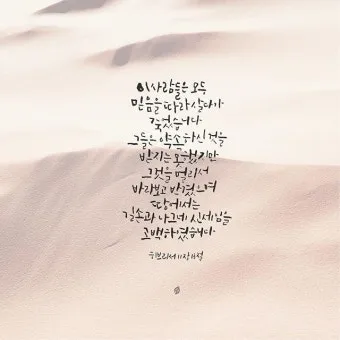 이사람들은 모두
믿음을 따라 살다가
죽었습니다
그들은 약속하신것을
받지는 못했지만
그것을 멀리서
바라보고 반겼으며
땅에서는
길손과 나그네 신세임을
고백하였습니다
히브리서 11장 13절